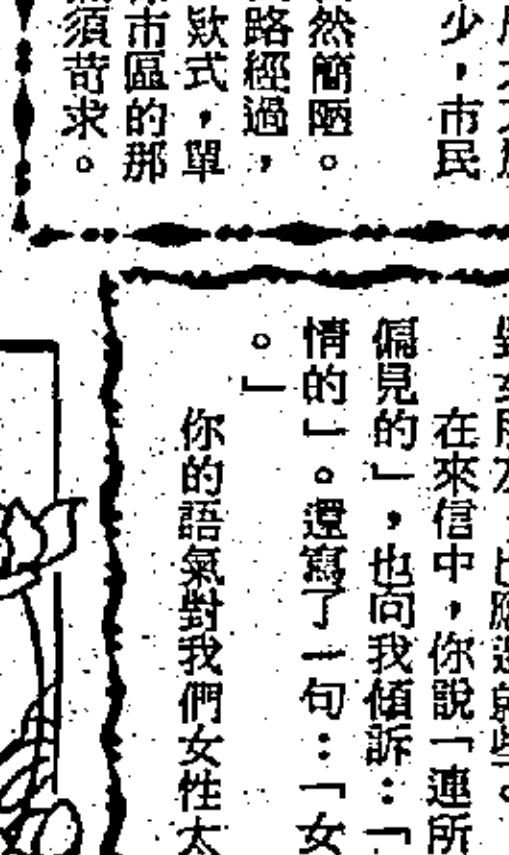 少，市民
然簡陋。
路經過，
欵式，單
市區的那
須苛求。
在來信中，你說「連所
偏見的」，也向我傾訴：「
情的」。還寫了一句：「女
。」
你的語氣對我們女性太